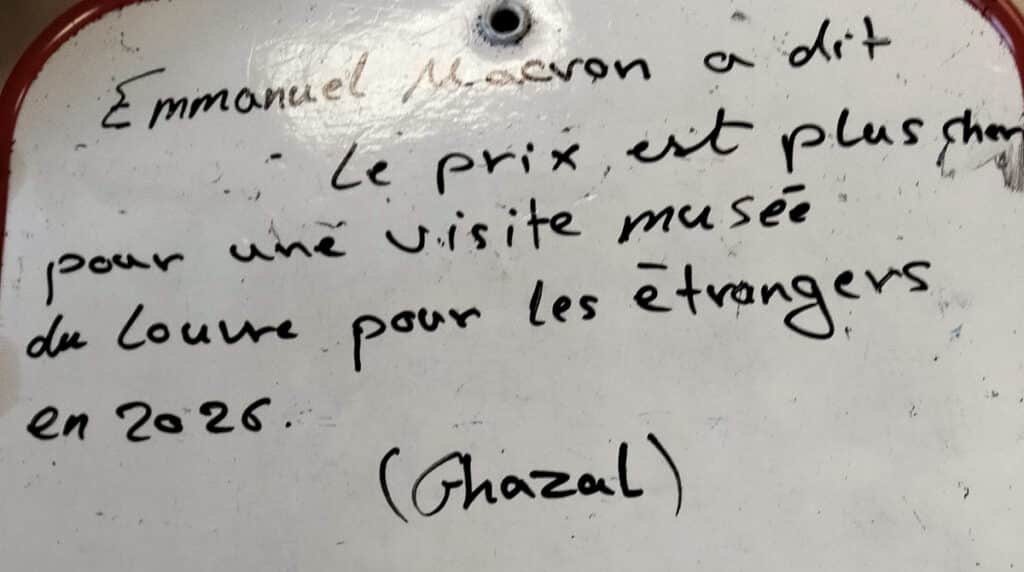 Emmanuel Macron a dit
Le prix est plus cher
pour une visite musée
du Louvre pour les étrangers
en 2026.
(Ghazal)